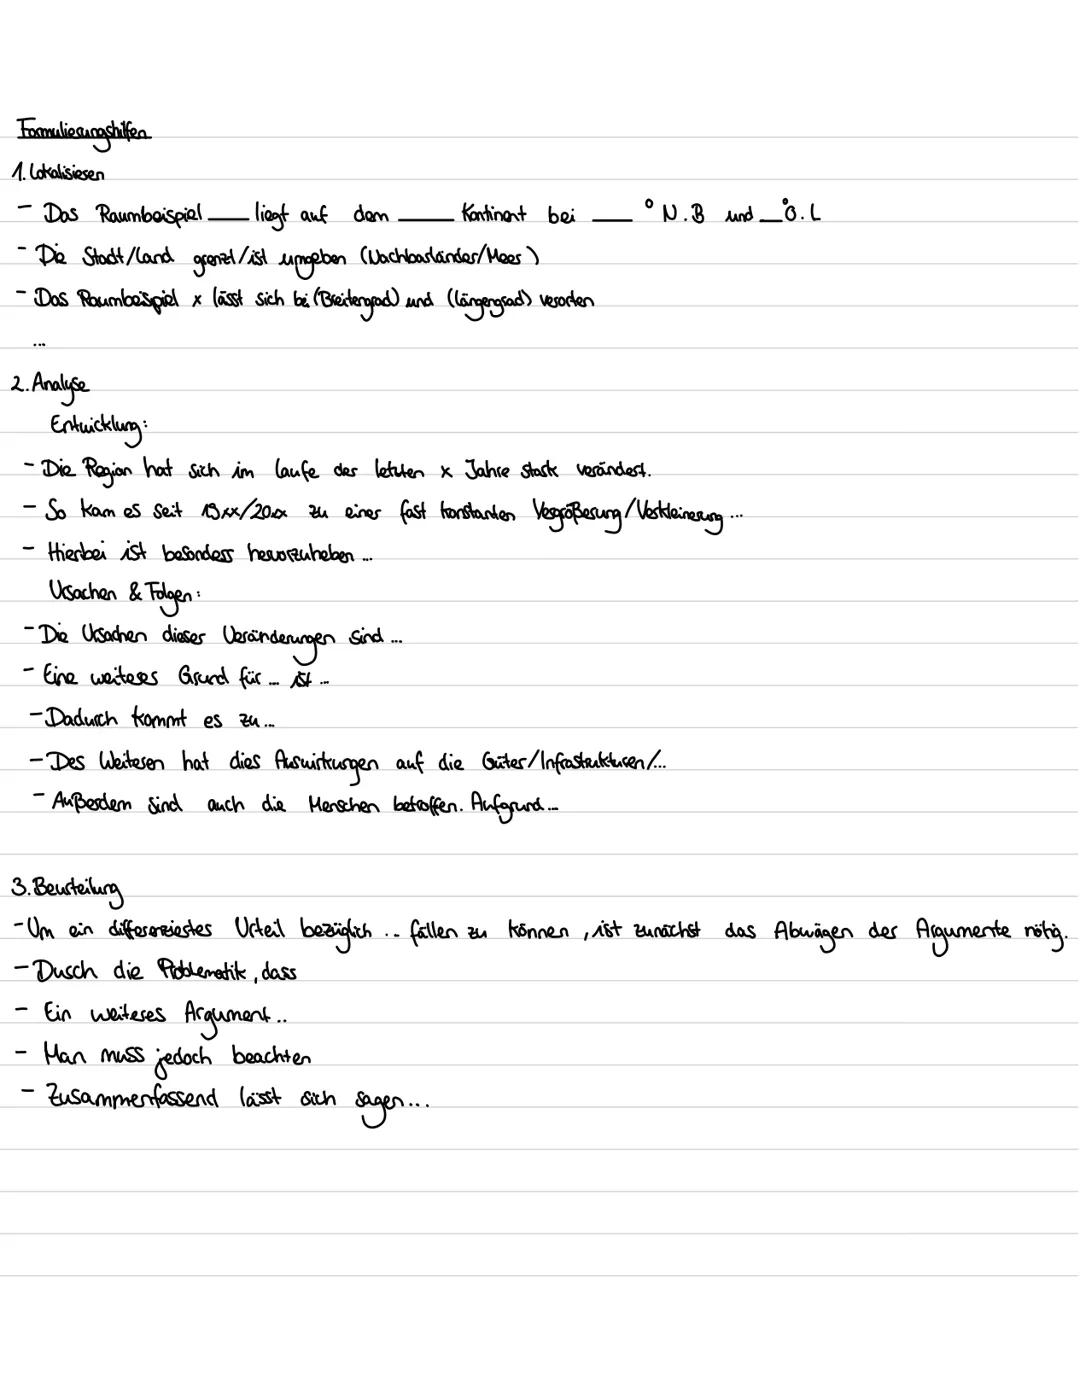 Formulierungshilfen
1. Lokalisieren
- Das Raumbeispiel ___ liegt auf dem ___ Kontinent bei ___ ° N.B und __°Ö.L
- Die Stadt/Land grenzt/ist umgeben (Nachbarländer/Meer)
- Das Raumbeispiel x lässt sich bei (Breitengrad) und (Längengrad) verorten
...
2. Analyse
Entwicklung:
- Die Region hat sich im Laufe der letzten x Jahre stark verändert.
- So kam es seit 19xx/20xx zu einer fast konstanten Vergrößerung/Verkleinerung ...
- Hierbei ist besonders hervorzuheben ...
Ursachen & Folgen:
- Die Ursachen dieser Veränderungen sind ...
- Eine weiteres Grund für ... ist ...
- Dadurch kommt es zu ...
- Des Weiteren hat dies Auswirkungen auf die Güter/Infrastrukturen/...
- Außerdem sind auch die Menschen betroffen. Aufgrund ...
3. Beurteilung
- Um ein differenziertes Urteil bezüglich ... fällen zu können, ist zunächst das Abwägen der Argumente nötig.
- Durch die Problematik, dass
- Ein weiteres Argument ..
- Man muss jedoch beachten
- Zusammenfassend lässt sich sagen ...